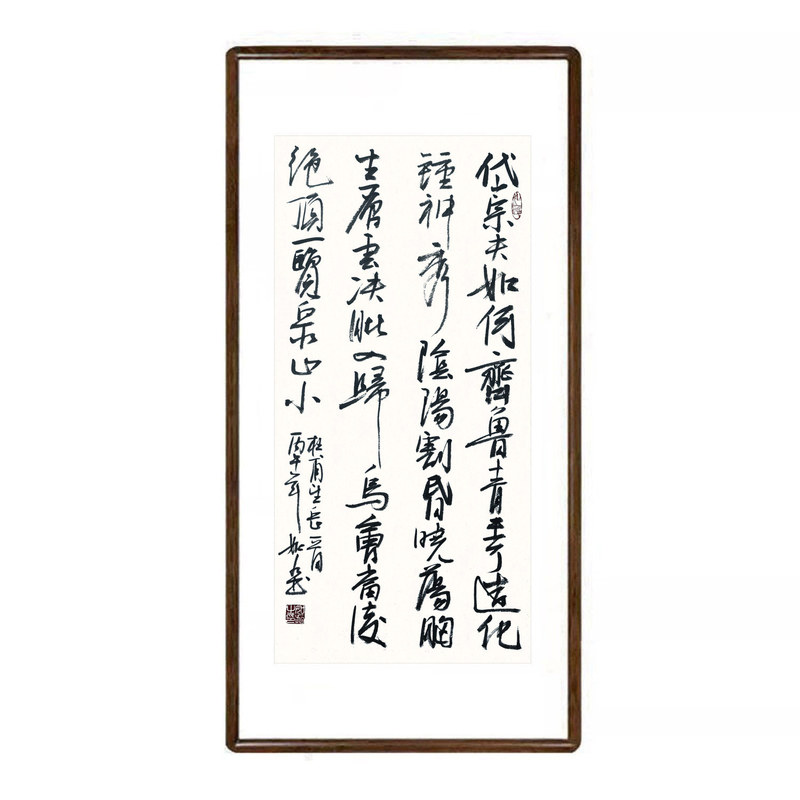 岱宗夫如何齊魯青未了造化
鍾神秀陰陽割昏曉蕩胸
生層雲决眦入歸鳥會當凌
絕頂一覽眾山小
杜甫
丙午年